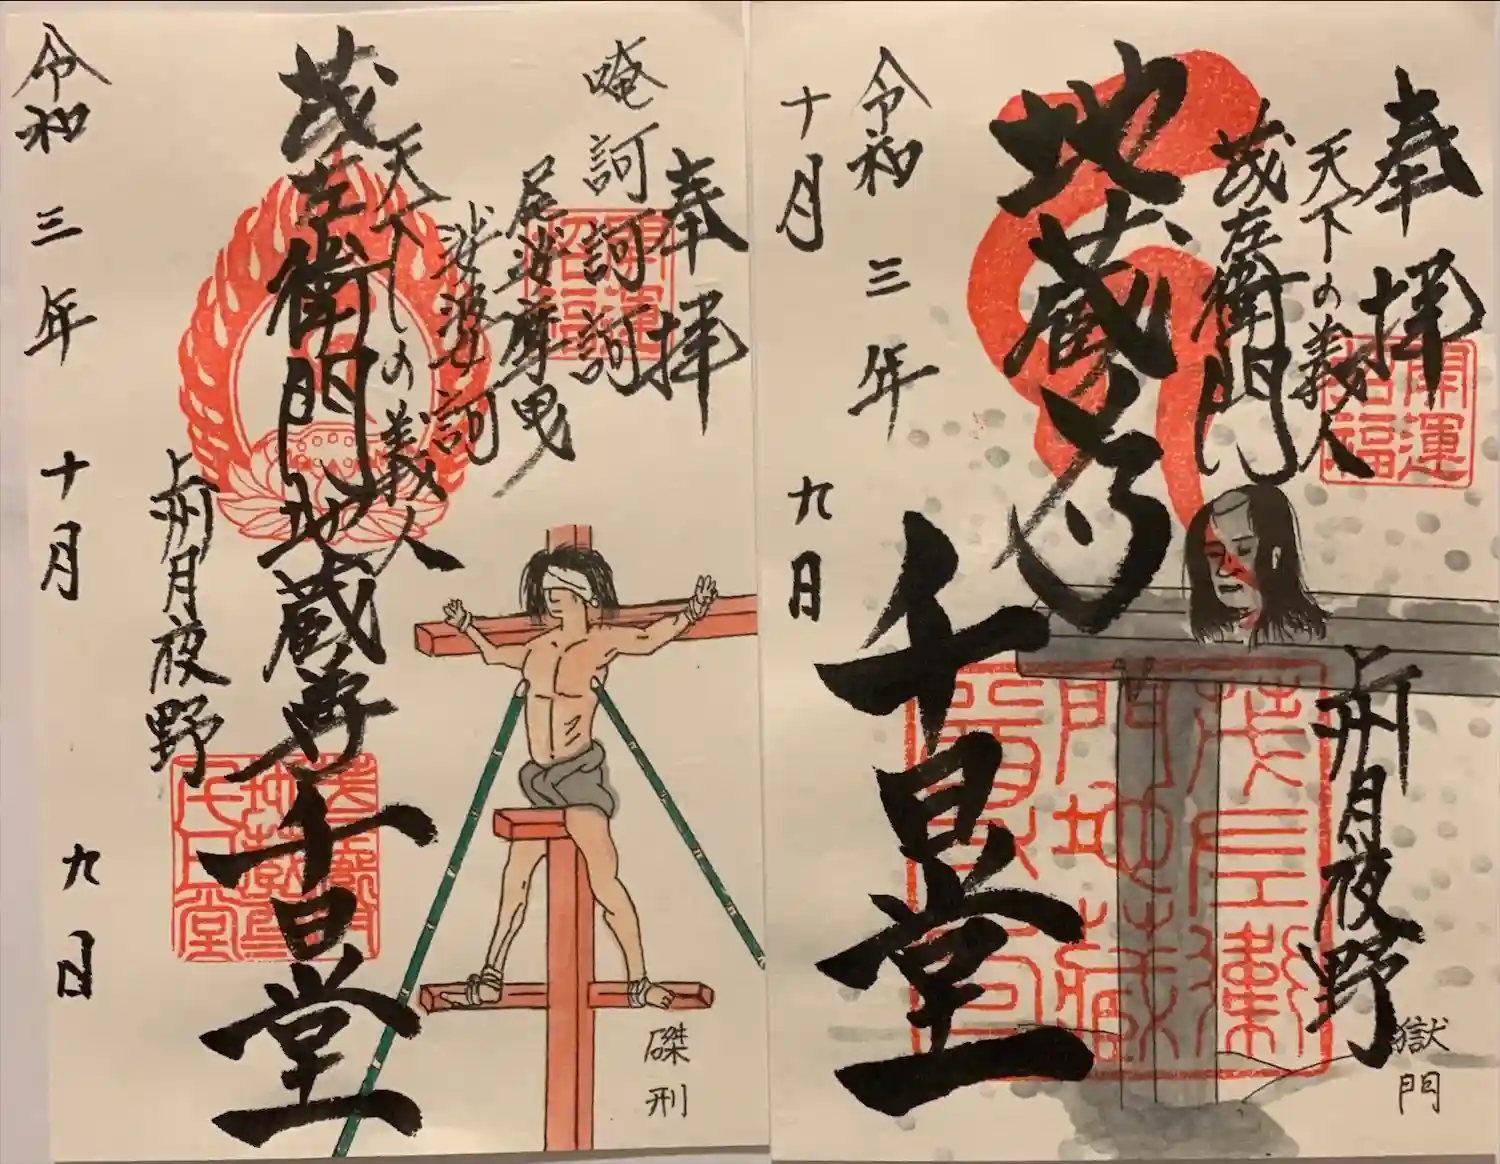 奉拝
唵訶訶訶
尾娑摩曳
娑婆訶
天下の義人
茂左衛門地蔵尊
千日堂
上州月夜野
令和三年十月九日
開運招福
磔刑
奉拝
天下の義人
茂左衛門
地蔵尊
千日堂
上州月夜野
令和三年
十月九日
開運招福
茂左衛門地蔵尊千日堂
獄門